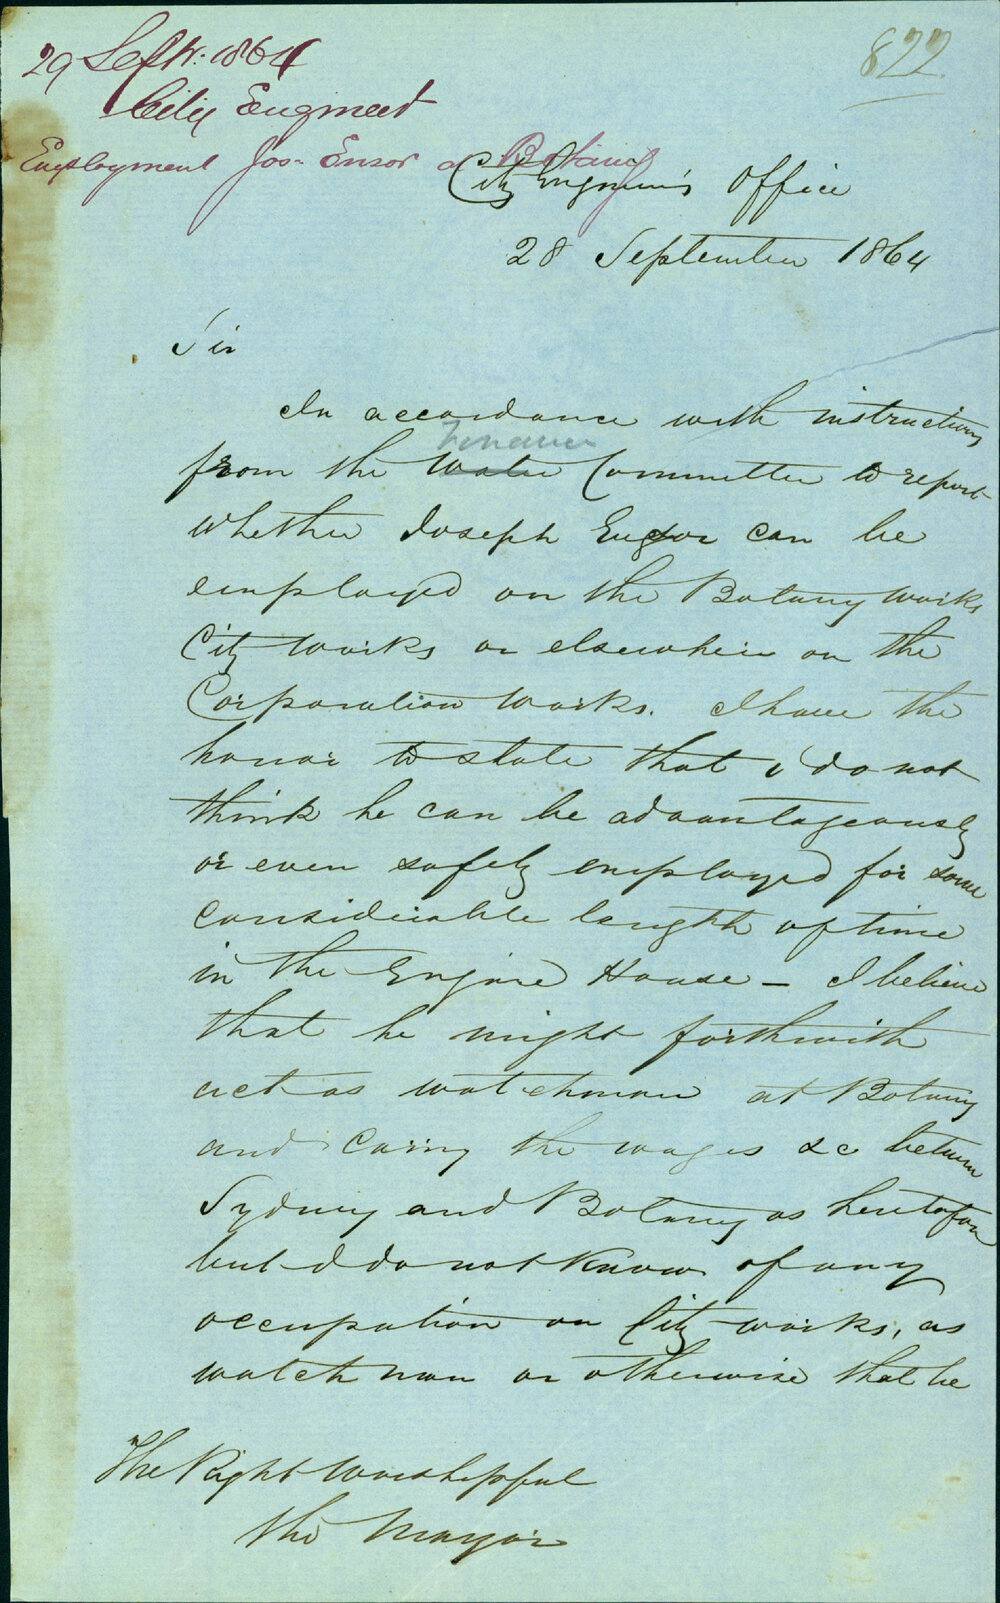 822
29 Septr. 1864
City Engineer
Employment Jos. Ensor at Botany
City Engineer's Office
28 September 1864
Sir
In accordance with instructions
Finance
from the Water Committee to report
whether Joseph Ensor can be
employed on the Botany works
City works or elsewhere on the
Corporation works. I have the
honor to state that I do not
think he can be advantageously
or even safely employed for some
considerable length of time
in the Engine House – I believe
that he might forthwith
act as watchman at Botany
and carry the wages &c between
Sydney and Botany as heretofore
but I do not know of any
occupation on City works, as
watchman or otherwise that he
The Right Worshipful
the Mayor